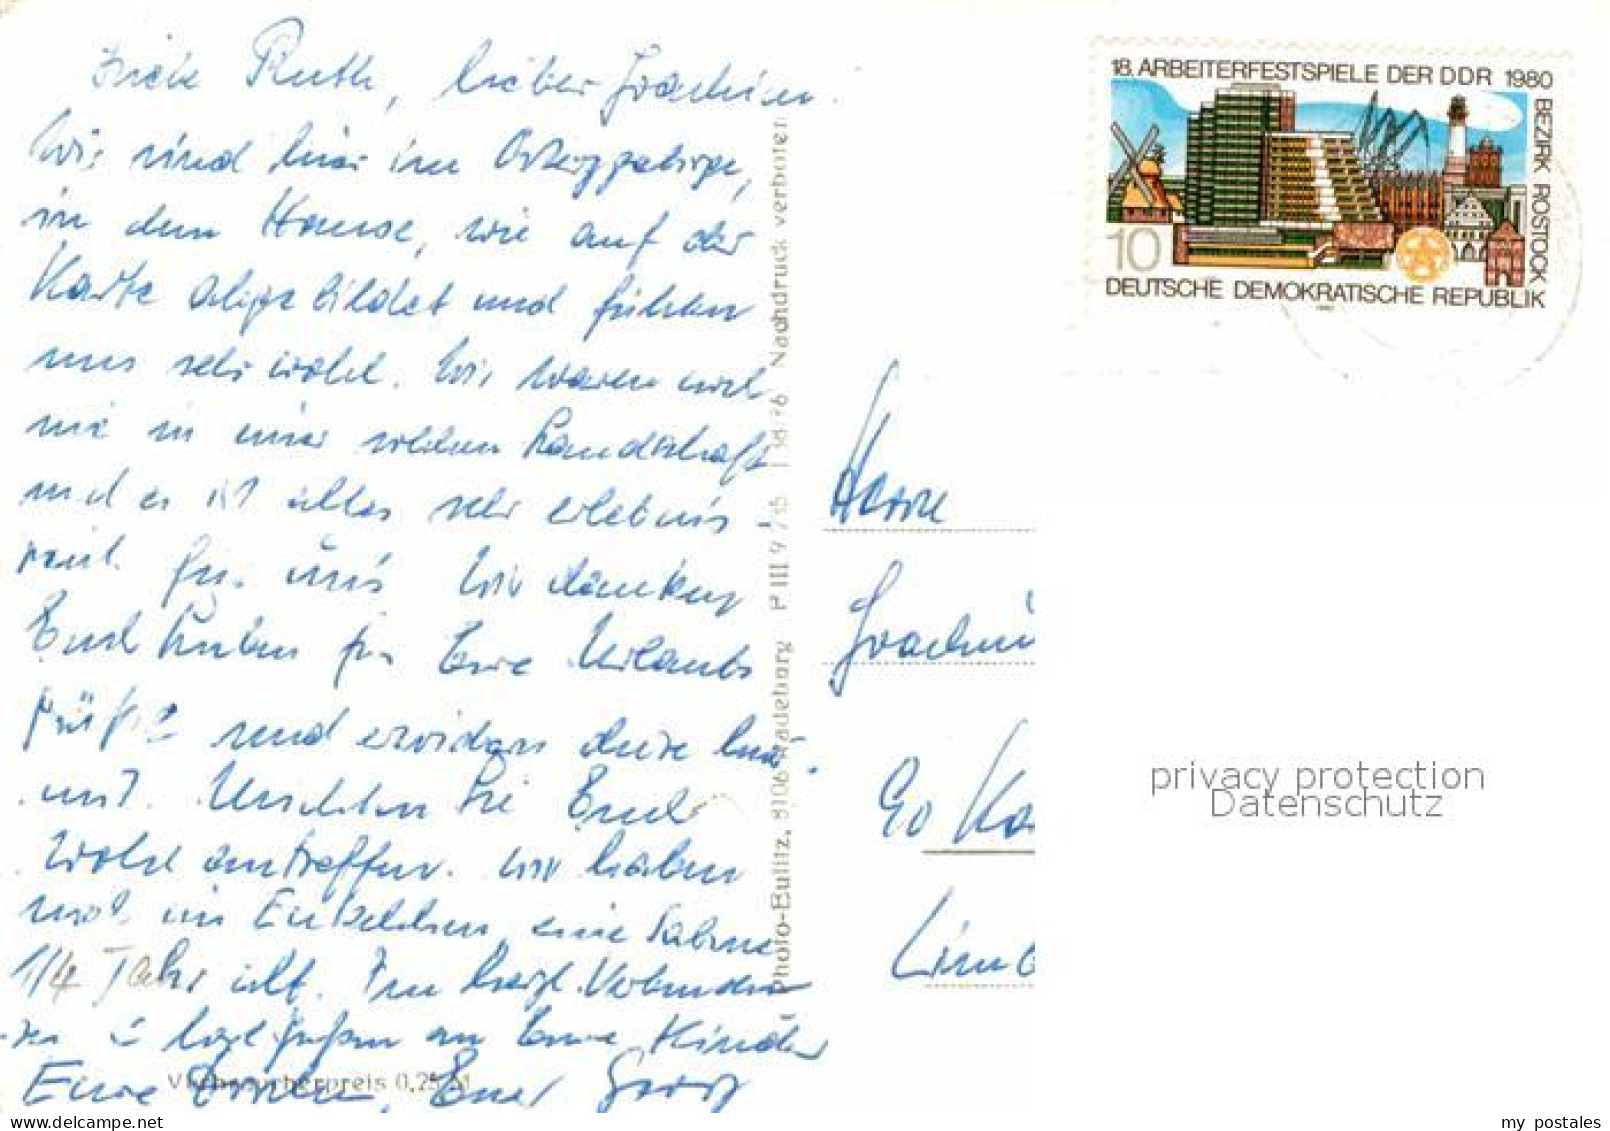 Liebe Ruth, lieber Joachim.
Wir sind hier im Osterzgebirge,
in dem Hause, wie auf der
Karte abgebildet und fühlen
uns sehr wohl. Wir waren noch
nie in einer solchen Landschaft
und es ist alles sehr erlebnis-
reich für uns Wir danken
Euch lieben für Eure Urlaubs
grüße und erwidern diese hier
mit. Möchten sie Euch
wohl antreffen. Wir haben
noch ein Enkelchen, eine Sabine
1/4 Jahr alt. In herzl. Verbunden
u herzl. Grüßen an Eure Kinder
Eure Euer Georg
Verbraucherpreis 0,25 M
Photo-Eulitz, 8106 Radeburg P III 9/15 Nachdruck verboten
18. ARBEITERFESTSPIELE DER DDR 1980
BEZIRK ROSTOCK
10
DEUTSCHE DEMOKRATISCHE REPUBLIK
Herrn
Joachim
Limb
privacy protection
Datenschutz
my postales